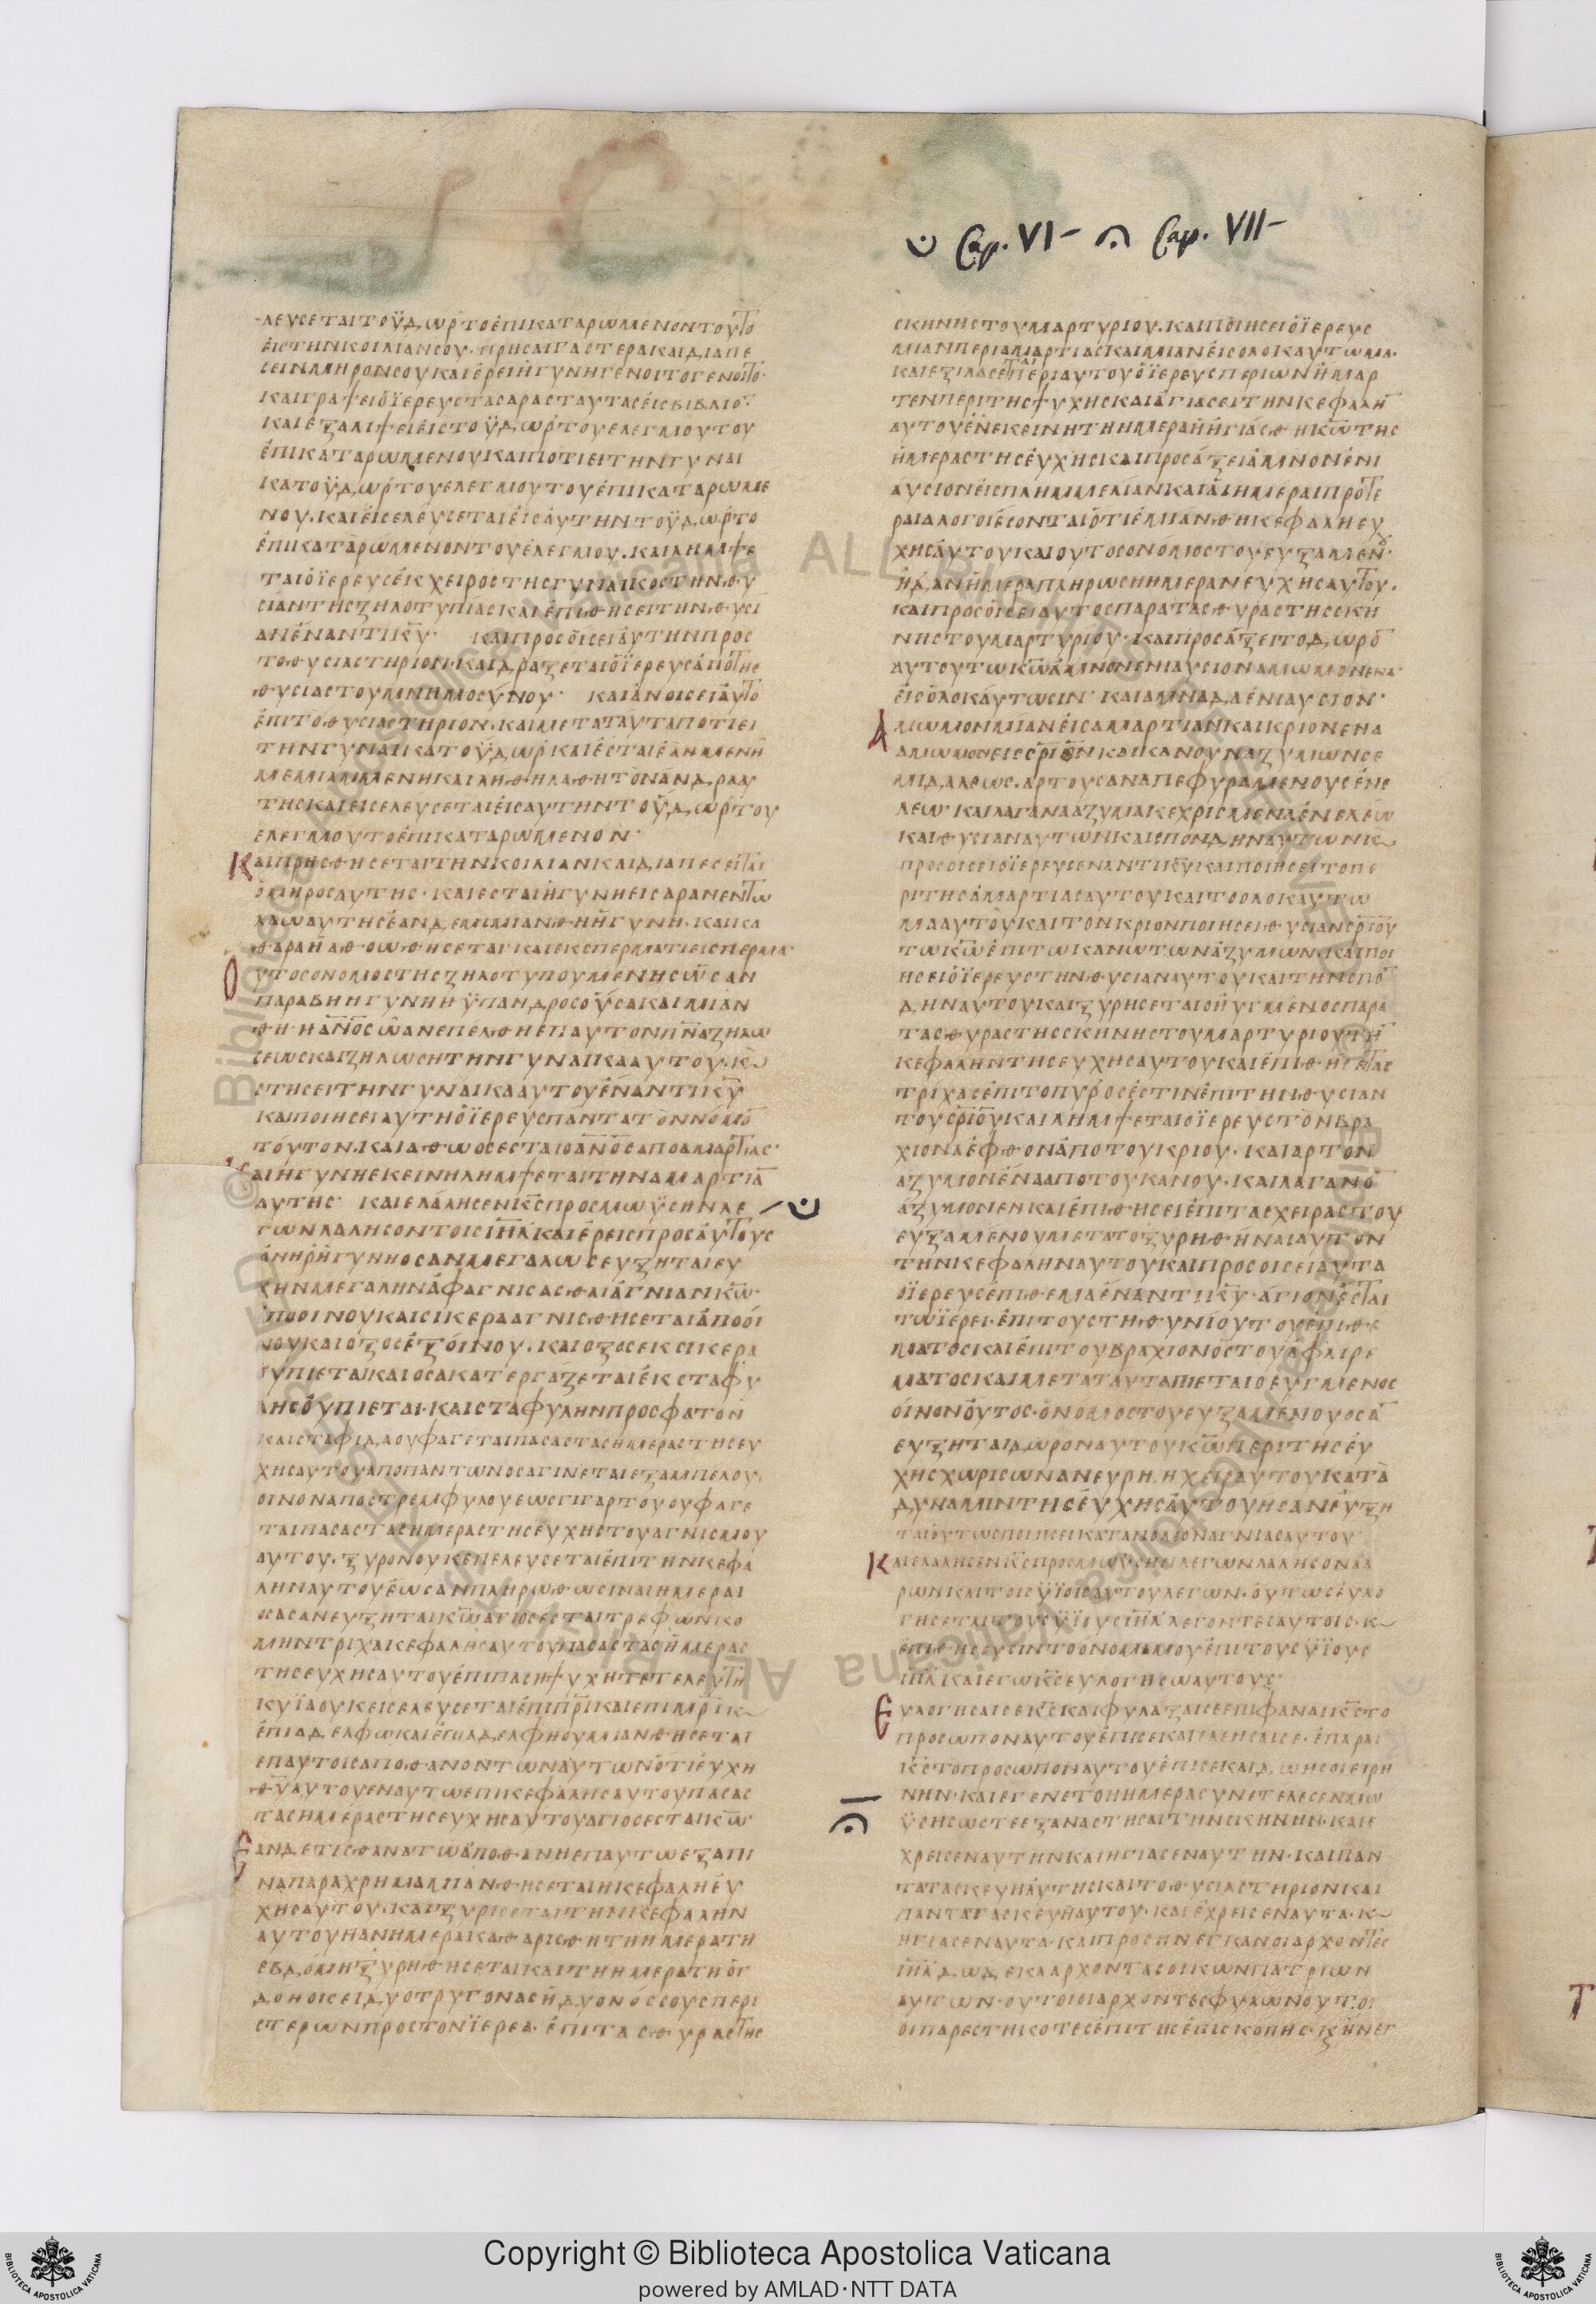 Cap. VI– Cap. VII–
ΛΕΥCΕΤΑΙΤΟΫΔΩΡΤΟΕΠΙΚΑΤΑΡΩΜΕΝΟΝΤΟΥΤΟ
ΕΙCΤΗΝΚΟΙΛΙΑΝCΟΥ·ΠΡΗCΑΙΓΑCΤΕΡΑΚΑΙΔΙΑΠΕ
CΕΙΝΜΗΡΟΝCΟΥΚΑΙΕΡΕΙΗΓΥΝΗΓΕΝΟΙΤΟΓΕΝΟΙΤΟ·
ΚΑΙΓΡΑΨΕΙΟΪΕΡΕΥCΤΑCΑΡΑCΤΑΥΤΑCΕΙCΒΙΒΛΙΟ̅
ΚΑΙΕΞΑΛΙΨΕΙΕΙCΤΟΫΔΩΡΤΟΥΕΛΕΓΜΟΥΤΟΥ
ΕΠΙΚΑΤΑΡΩΜΕΝΟΥΚΑΙΠΟΤΙΕΙΤΗΝΓΥΝΑΙ
ΚΑΤΟΫΔΩΡΤΟΥΕΛΕΓΜΟΥΤΟΥΕΠΙΚΑΤΑΡΩΜΕ
ΝΟΥ·ΚΑΙΕΙCΕΛΕΥCΕΤΑΙΕΙCΑΥΤΗΝΤΟΫΔΩΡΤΟ
ΕΠΙΚΑΤΑΡΩΜΕΝΟΝΤΟΥΕΛΕΓΜΟΥ·ΚΑΙΛΗΜΨΕ
ΤΑΙΟΪΕΡΕΥCΕΚΧΕΙΡΟCΤΗCΓΥΝΑΙΚΟCΤΗΝΘΥ
CΙΑΝΤΗCΖΗΛΟΤΥΠΙΑCΚΑΙΕΠΙΘΗCΕΙΤΗΝΘΥCΙ
ΑΝΕΝΑΝΤΙΚ̅Υ̅· ΚΑΙΠΡΟCΟΙCΕΙΑΥΤΗΝΠΡΟC
ΤΟΘΥCΙΑCΤΗΡΙΟΝ·ΚΑΙΔΡΑΞΕΤΑΙΟΪΕΡΕΥCΑΠΟΤΗC
ΘΥCΙΑCΤΟΥΜΝΗΜΟCΥΝΟΥ· ΚΑΙΑΝΟΙCΕΙΑΥΤΟ
ΕΠΙΤΟΘΥCΙΑCΤΗΡΙΟΝ·ΚΑΙΜΕΤΑΤΑΥΤΑΠΟΤΙΕΙ
ΤΗΝΓΥΝΑΙΚΑΤΟΫΔΩΡΚΑΙΕCΤΑΙΕΑΝΗΜΕΝΗ
ΜΕΜΙΑΜΜΕΝΗΚΑΙΛΗΘΗΛΑΘΗΤΟΝΑΝΔΡΑΑΥ
ΤΗCΚΑΙΕΙCΕΛΕΥCΕΤΑΙΕΙCΑΥΤΗΝΤΟΫΔΩΡΤΟΥ
ΕΛΕΓΜΟΥΤΟΕΠΙΚΑΤΑΡΩΜΕΝΟΝ·
ΚΑΙΠΡΗCΘΗCΕΤΑΙΤΗΝΚΟΙΛΙΑΝΚΑΙΔΙΑΠΕCΕΙΤΑΙ
ΟΜΗΡΟCΑΥΤΗC·ΚΑΙΕCΤΑΙΗΓΥΝΗΕΙCΑΡΑΝΕΝΤΩ
ΛΑΩΑΥΤΗCΕΑΝΔΕΜΗΜΙΑΝΘΗΗΓΥΝΗ·ΚΑΙΚΑ
ΘΑΡΑΗΑΘΟΩΘΗCΕΤΑΙΚΑΙΕΚCΠΕΡΜΑΤΙΕΙCΠΕΡΜΑ·
ΟΥΤΟCΟΝΟΜΟCΤΗCΖΗΛΟΤΥΠΟΥΜΕΝΗCΩCΑΝ
ΠΑΡΑΒΗΗΓΥΝΗΗΫΠΑΝΔΡΟCΟΥCΑΚΑΙΜΙΑΝ
ΘΗ·ΗΑ̅Ν̅Ο̅C̅ΩΑΝΕΠΕΛΘΗΕΠΑΥΤΟΝΠ̅Ν̅Α̅ΖΗΛΩ
CΕΩCΚΑΙΖΗΛΩCΗΤΗΝΓΥΝΑΙΚΑΑΥΤΟΥ·Κ
CΤΗCΕΙΤΗΝΓΥΝΑΙΚΑΑΥΤΟΥΕΝΑΝΤΙΚ̅Υ̅
ΚΑΙΠΟΙΗCΕΙΑΥΤΗΟΪΕΡΕΥCΠΑΝΤΑΤΟΝΝΟΜΟ̅
ΤΟΥΤΟΝ·ΚΑΙΑΘΩΟCΕCΤΑΙΟΑ̅Ν̅Ο̅C̅ΑΠΟΑΜΑΡΤΙΑC·
ΚΑΙΗΓΥΝΗΕΚΕΙΝΗΛΗΜΨΕΤΑΙΤΗΝΑΜΑΡΤΙΑ̅
ΑΥΤΗC· ΚΑΙΕΛΑΛΗCΕΝΚ̅C̅ΠΡΟCΜΩΫCΗΝΛΕ
ΓΩΝΛΑΛΗCΟΝΤΟΙCΙ̅Η̅Λ̅ΚΑΙΕΡΕΙCΠΡΟCΑΥΤΟΥC
ΑΝΗΡΗΓΥΝΗΟCΑΝΜΕΓΑΛΩCΕΥΞΗΤΑΙΕΥ
ΧΗΝΜΕΓΑΛΗΝΑΦΑΓΝΙCΑCΘΑΙΑΓΝΙΑΝΚ̅Ω̅·
ΑΠΟΟΙΝΟΥΚΑΙCΙΚΕΡΑΑΓΝΙCΘΗCΕΤΑΙΑΠΟΟΙ
ΝΟΥΚΑΙΟΞΟCΕΞΟΙΝΟΥ·ΚΑΙΟΞΟCΕΚCΙΚΕΡΑ
ΟΥΠΙΕΤΑΙΚΑΙΟCΑΚΑΤΕΡΓΑΖΕΤΑΙΕΚCΤΑΦΥ
ΛΗCΟΥΠΙΕΤΑΙ·ΚΑΙCΤΑΦΥΛΗΝΠΡΟCΦΑΤΟΝ
ΚΑΙCΤΑΦΙΔΑΟΥΦΑΓΕΤΑΙΠΑCΑCΤΑCΗΜΕΡΑCΤΗCΕΥ
ΧΗCΑΥΤΟΥΑΠΟΠΑΝΤΩΝΟCΑΓΙΝΕΤΑΙΕΞΑΜΠΕΛΟΥ·
ΟΙΝΟΝΑΠΟCΤΡΕΜΦΥΛΟΥΕΩCΓΙΓΑΡΤΟΥΟΥΦΑΓΕ
ΤΑΙΠΑCΑCΤΑCΗΜΕΡΑCΤΗCΕΥΧΗCΤΟΥΑΓΝΙCΜΟΥ
ΑΥΤΟΥ·ΞΥΡΟΝΟΥΚΕΠΕΛΕΥCΕΤΑΙΕΠΙΤΗΝΚΕΦΑ
ΛΗΝΑΥΤΟΥΕΩCΑΝΠΛΗΡΩΘΩCΙΝΑΙΗΜΕΡΑΙ
ΟCΑCΑΝΕΥΞΗΤΑΙΚ̅Ω̅ΑΓΙΟCΕCΤΑΙΤΡΕΦΩΝΚΟ
ΜΗΝΤΡΙΧΑΚΕΦΑΛΗCΑΥΤΟΥΠΑCΑCΤΑCΗΜΕΡΑC
ΤΗCΕΥΧΗCΑΥΤΟΥΕΠΙΠΑCΗΨΥΧΗΤΕΤΕΛΕΥΤΗ
ΚΥΪΑΟΥΚΕΙCΕΛΕΥCΕΤΑΙΕΠΙΠ̅Ρ̅Ι̅ΚΑΙΕΠΙΜ̅Ρ̅Ι̅Κ
ΕΠΙΑΔΕΛΦΩΚΑΙΕΠΙΑΔΕΛΦΗΟΥΜΙΑΝΘΗCΕΤΑΙ
ΕΠΑΥΤΟΙCΑΠΟΘΑΝΟΝΤΩΝΑΥΤΩΝΟΤΙΕΥΧΗ
Θ̅Υ̅ΑΥΤΟΥΕΝΑΥΤΩΕΠΙΚΕΦΑΛΗCΑΥΤΟΥΠΑCΑC
ΤΑCΗΜΕΡΑCΤΗCΕΥΧΗCΑΥΤΟΥΑΓΙΟCΕCΤΑΙΚ̅Ω̅
ΕΑΝΔΕΤΙCΘΑΝΑΤΩΑΠΟΘΑΝΗΕΠΑΥΤΩΕΞΑΠΙ
ΝΑΠΑΡΑΧΡΗΜΑΜΙΑΝΘΗCΕΤΑΙΗΚΕΦΑΛΗΕΥ
ΧΗCΑΥΤΟΥ·ΚΑΙΞΥΡΙCΕΤΑΙΤΗΝΚΕΦΑΛΗΝ
ΑΥΤΟΥΗΑΝΗΜΕΡΑΚΑΘΑΡΙCΘΗΤΗΗΜΕΡΑΤΗ
ΕΒΔΟΜΗΞΥΡΗΘΗCΕΤΑΙΚΑΙΤΗΗΜΕΡΑΤΗΟΓ
ΔΟΗΟΙCΕΙΔΥΟΤΡΥΓΟΝΑCΗΔΥΟΝΟCCΟΥCΠΕΡΙ
CΤΕΡΩΝΠΡΟCΤΟΝΪΕΡΕΑ·ΕΠΙΤΑCΘΥΡΑCΤΗC
CΚΗΝΗCΤΟΥΜΑΡΤΥΡΙΟΥ·ΚΑΙΠΟΙΗCΕΙΟΪΕΡΕΥC
ΜΙΑΝΠΕΡΙΑΜΑΡΤΙΑCΚΑΙΜΙΑΝΕΙCΟΛΟΚΑΥΤΩΜΑ·
ΚΑΙΕΞΙΛΑCΕΤΑΙΠΕΡΙΑΥΤΟΥΟΪΕΡΕΥCΠΕΡΙΩΝΗΜΑΡ
ΤΕΝΠΕΡΙΤΗCΨΥΧΗCΚΑΙΑΓΙΑCΕΙΤΗΝΚΕΦΑΛΗ̅
ΑΥΤΟΥΕΝΕΚΕΙΝΗΤΗΗΜΕΡΑΗΗΓΙΑCΘΗΚ̅Ω̅ΤΗC
ΗΜΕΡΑCΤΗCΕΥΧΗCΚΑΙΠΡΟCΑΞΕΙΑΜΝΟΝΕΝΙ
ΑΥCΙΟΝΕΙCΠΛΗΜΜΕΛΙΑΝΚΑΙΑΙΗΜΕΡΑΙΠΡΟΤΕ
ΡΑΙΑΛΟΓΟΙΕCΟΝΤΑΙΟΤΙΕΜΙΑΝΘΗΚΕΦΑΛΗΕΥ
ΧΗCΑΥΤΟΥΚΑΙΟΥΤΟCΟΝΟΜΟCΤΟΥΕΥΞΑΜΕΝΟΥ·
ΗΔΑΝΗΜΕΡΑΠΛΗΡΩCΗΗΜΕΡΑΝΕΥΧΗCΑΥΤΟΥ·
ΚΑΙΠΡΟCΟΙCΕΙΑΥΤΟCΠΑΡΑΤΑCΘΥΡΑCΤΗCCΚΗ
ΝΗCΤΟΥΜΑΡΤΥΡΙΟΥ·ΚΑΙΠΡΟCΑΞΕΙΤΟΔΩΡΟ̅
ΑΥΤΟΥΤΩΚ̅Ω̅ΑΜΝΟΝΕΝΙΑΥCΙΟΝΑΜΩΜΟΝΕΝΑ·
ΕΙCΟΛΟΚΑΥΤΩCΙΝ· ΚΑΙΑΜΝΑΔΑΕΝΙΑΥCΙΟΝ·
ΑΜΩΜΟΝΜΙΑΝΕΙCΑΜΑΡΤΙΑΝΚΑΙΚΡΙΟΝΕΝΑ
ΑΜΩΜΟΝΕΙCC̅Ρ̅ΙΟΝΚΑΙΚΑΝΟΥΝΑΖΥΜΩΝCΕ
ΜΙΔΑΛΕΩC·ΑΡΤΟΥCΑΝΑΠΕΦΥΡΑΜΕΝΟΥCΕΝΕ
ΛΕΩ·ΚΑΙΛΑΓΑΝΑΑΖΥΜΑΚΕΧΡΙCΜΕΝΑΕΝΕΛΕΩ
ΚΑΙΘΥCΙΑΝΑΥΤΩΝΚΑΙCΠΟΝΔΗΝΑΥΤΩΝΚ
ΠΡΟCΟΙCΕΙΟΪΕΡΕΥCΕΝΑΝΤΙΚ̅Υ̅ΚΑΙΠΟΙΗCΕΙΤΟΠΕ
ΡΙΤΗCΑΜΑΡΤΙΑCΑΥΤΟΥΚΑΙΤΟΟΛΟΚΑΥΤΩ
ΜΑΑΥΤΟΥΚΑΙΤΟΝΚΡΙΟΝΠΟΙΗCΕΙΘΥCΙΑΝC̅Ρ̅ΙΟΥ
ΤΩΚ̅Ω̅ΕΠΙΤΩΚΑΝΩΤΩΝΑΖΥΜΩΝ·ΚΑΙΠΟΙ
ΗCΕΙΟΪΕΡΕΥCΤΗΝΘΥCΙΑΝΑΥΤΟΥΚΑΙΤΗΝCΠΟ̅
ΔΗΝΑΥΤΟΥΚΑΙΞΥΡΗCΕΤΑΙΟΗΥΓΜΕΝΟCΠΑΡΑ
ΤΑCΘΥΡΑCΤΗCCΚΗΝΗCΤΟΥΜΑΡΤΥΡΙΟΥΤΗ̅
ΚΕΦΑΛΗΝΤΗCΕΥΧΗCΑΥΤΟΥΚΑΙΕΠΙΘΗCΕΙΤΑC
ΤΡΙΧΑCΕΠΙΤΟΠΥΡΟCΕCΤΙΝΕΠΙΤΗΝΘΥCΙΑΝ
ΤΟΥC̅Ρ̅ΙΟΥΚΑΙΛΗΜΨΕΤΑΙΟΪΕΡΕΥCΤΟΝΒΡΑ
ΧΙΟΝΑΕΦΘΟΝΑΠΟΤΟΥΚΡΙΟΥ·ΚΑΙΑΡΤΟΝ
ΑΖΥΜΟΝΕΝΑΑΠΟΤΟΥΚΑΝΟΥ·ΚΑΙΛΑΓΑΝΟ̅
ΑΖΥΜΟΝΕΝΚΑΙΕΠΙΘΗCΕΙΕΠΙΤΑCΧΕΙΡΑCΤΟΥ
ΕΥΞΑΜΕΝΟΥΜΕΤΑΤΟΞΥΡΗΘΗΝΑΙΑΥΤΟΝ
ΤΗΝΚΕΦΑΛΗΝΑΥΤΟΥΚΑΙΠΡΟCΟΙCΕΙΑΥΤΑ
ΟΪΕΡΕΥCΕΠΙΘΕΜΑΕΝΑΝΤΙΚ̅Υ̅·ΑΓΙΟΝΕCΤΑΙ
ΤΩΪΕΡΕΙ·ΕΠΙΤΟΥCΤΗΘΥΝΙΟΥΤΟΥΕΠΙΘΕ
ΜΑΤΟCΚΑΙΕΠΙΤΟΥΒΡΑΧΙΟΝΟCΤΟΥΑΦΑΙΡΕ
ΜΑΤΟCΚΑΙΜΕΤΑΤΑΥΤΑΠΙΕΤΑΙΟΕΥΓΜΕΝΟC
ΟΙΝΟΝΟΥΤΟC·ΟΝΟΜΟCΤΟΥΕΥΞΑΜΕΝΟΥΟCΑ̅
ΕΥΞΗΤΑΙΔΩΡΟΝΑΥΤΟΥΚ̅Ω̅ΠΕΡΙΤΗCΕΥ
ΧΗCΧΩΡΙCΩΝΑΝΕΥΡΗ·ΗΧΕΙΡΑΥΤΟΥΚΑΤΑ
ΔΥΝΑΜΙΝΤΗCΕΥΧΗCΑΥΤΟΥΗCΑΝΕΥΞΗ
ΤΑΙΟΥΤΩCΠΟΙΗCΕΙΚΑΤΑΝΟΜΟΝΑΓΝΙΑCΑΥΤΟΥ
ΚΑΙΕΛΑΛΗCΕΝΚ̅C̅ΠΡΟCΜΩΥCΗΝΛΕΓΩΝΛΑΛΗCΟΝΑΑ
ΡΩΝΚΑΙΤΟΙCΫΪΟΙCΑΥΤΟΥΛΕΓΩΝ·ΟΥΤΩCΕΥΛΟ
ΓΗCΕΤΑΙΤΟΥCΫΪΟΥCΙ̅Η̅Λ̅ΛΕΓΟΝΤΕCΑΥΤΟΙC·Κ
ΕΠΙΘΗCΟΥCΙΝΤΟΟΝΟΜΑΜΟΥΕΠΙΤΟΥCΫΪΟΥC
Ι̅Η̅Λ̅ΚΑΙΕΓΩΚ̅C̅ΕΥΛΟΓΗCΩΑΥΤΟΥC·
ΕΥΛΟΓΗCΑΙCΕΚ̅C̅ΚΑΙΦΥΛΑΞΑΙCΕΕΠΙΦΑΝΑΙΚ̅C̅ΤΟ
ΠΡΟCΩΠΟΝΑΥΤΟΥΕΠΙCΕΚΑΙΕΛΕΗCΑΙCΕ·ΕΠΑΡΑΙ
Κ̅C̅ΤΟΠΡΟCΩΠΟΝΑΥΤΟΥΕΠΙCΕΚΑΙΔΩΗCΟΙΕΙΡΗ
ΝΗΝ·ΚΑΙΕΓΕΝΕΤΟΗΗΜΕΡΑCΥΝΕΤΕΛΕCΕΝΜΩ
ΫCΗCΩCΤΕΕΞΑΝΑCΤΗCΑΙΤΗΝCΚΗΝΗΝ·ΚΑΙΕ
ΧΡΕΙCΕΝΑΥΤΗΝΚΑΙΗΓΙΑCΕΝΑΥΤΗΝ·ΚΑΙΠΑΝ
ΤΑΤΑCΚΕΥΗΑΥΤΗCΚΑΙΤΟΘΥCΙΑCΤΗΡΙΟΝΚΑΙ
ΠΑΝΤΑΤΑCΚΕΥΗΑΥΤΟΥ·ΚΑΙΕΧΡΕΙCΕΝΑΥΤΑ·Κ
ΗΓΙΑCΕΝΑΥΤΑ·ΚΑΙΠΡΟCΗΝΕΓΚΑΝΟΙΑΡΧΟΝΤΕC
Ι̅Η̅Λ̅ΔΩΔΕΚΑΑΡΧΟΝΤΑCΟΙΚΩΝΠΑΤΡΙΩΝ
ΑΥΤΩΝ·ΟΥΤΟΙΟΙΑΡΧΟΝΤΕCΦΥΛΩΝΟΥΤΟΙ
ΟΙΠΑΡΕCΤΗΚΟΤΕCΕΠΙΤΗCΕΠΙCΚΟΠΗC·ΚΗΝΕΓ
Copyright © Biblioteca Apostolica Vaticana
powered by AMLAD·NTT DATA